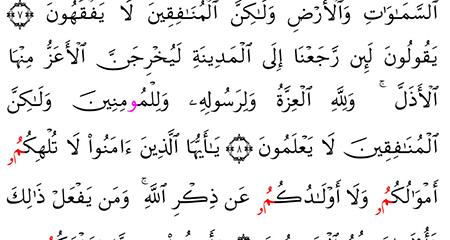 ٱلسَّمَٰوَٰتِ وَٱلْأَرْضِ وَلَٰكِنَّ ٱلْمُنَٰفِقِينَ لَا يَفْقَهُونَ ﴿٧﴾
يَقُولُونَ لَئِن رَّجَعْنَا إِلَى ٱلْمَدِينَةِ لَيُخْرِجَنَّ ٱلْأَعَزُّ مِنْهَا
ٱلْأَذَلَّ ۚ وَلِلَّهِ ٱلْعِزَّةُ وَلِرَسُولِهِۦ وَلِلْمُومِنِينَ وَلَٰكِنَّ
ٱلْمُنَٰفِقِينَ لَا يَعْلَمُونَ ﴿٨﴾ يَٰأَيُّهَا ٱلَّذِينَ ءَامَنُوا۟ لَا تُلْهِكُمُۥ
أَمْوَٰلُكُمُۥ وَلَا أَوْلَٰدُكُمُۥ عَن ذِكْرِ ٱللَّهِ ۚ وَمَن يَفْعَلْ ذَٰلِكَ